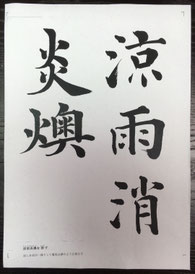 涼雨消
炎燠